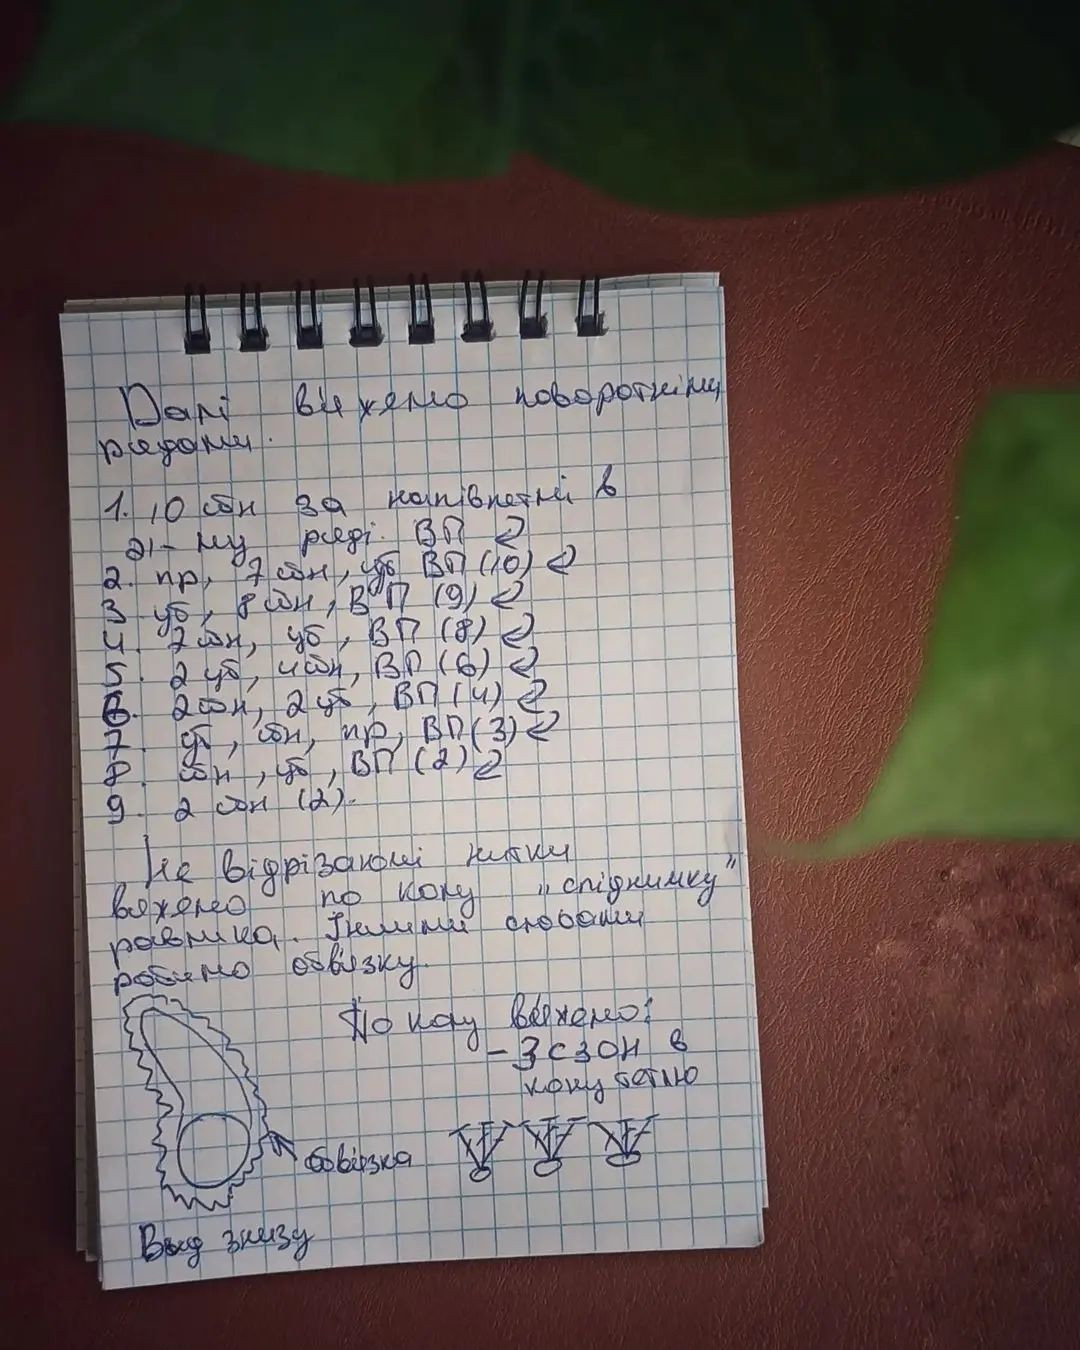 Далі в'яжемо поворотніми
рядами.
1. 10 сбн за напівпетлі в
21-му ряді. ВП
2. пр, 7 сбн, уб ВП (10)
3 уб, 8 сбн, ВП (9)
4. 7 сбн, уб, ВП (8)
5. 2 уб, 4 сбн, ВП (6)
6. 2 сбн, 2 уб, ВП (4)
7. уб, сбн, пр, ВП (3)
8. сбн, уб, ВП (2)
9. 2 сбн (2).
Не відрізаючі нитки
вяжемо по колу „спіднимку"
равлика. Іншими словами
робимо обв'язку.
По колу вяжемо:
- 3 СЗОН в
кожну петлю
обв'язка
Выд знизу